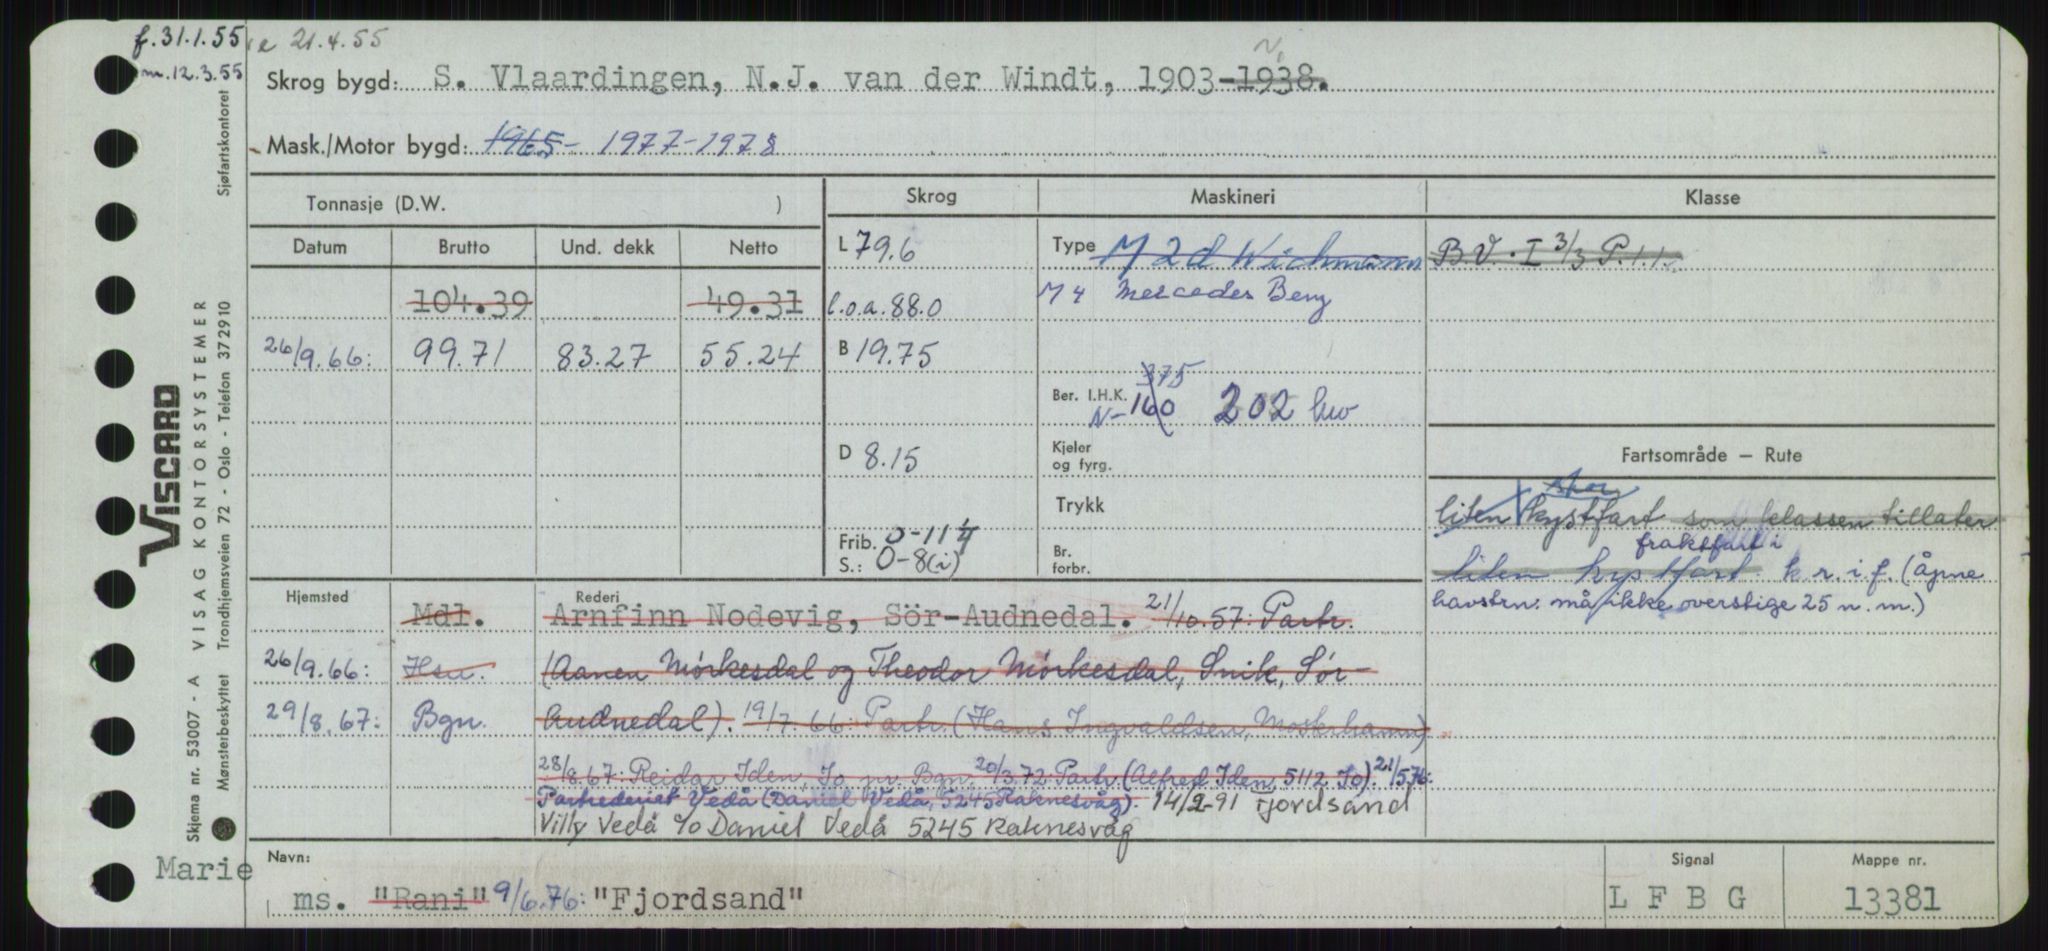 f.31.1.55 e 21.4.55
m.12.3.55
Skrog bygd: S. Vlaardingen, N.J. van der Windt, 1903-1938.
Mask./Motor bygd: 1965- 1977-1978
Tonnasje (D.W. )
Skrog
Maskineri
Klasse
Datum Brutto Und. dekk Netto
L 79.6
Type M 2d Wichmann
B.V. I 3/3 P.1.1.
104.39 49.31
l.o.a. 88.0
M 4 Mercedes Benz
26/9.66: 99.71 83.27 55.24
B 19.75
375
Ber. I.H.K. N-160 202 hw
D 8.15
Kjeler
og fyrg.
Fartsområde — Rute
Trykk
stor
liten kystfart som klassen tillater
Frib. 0-11
S.: 0-8(i)
Br.
forbr.
fraktfart i
liten kystfart. k.r.i.f. (åpne
havstrn. må ikke overstige 25 n.m.)
Hjemsted
Rederi
Mdl. Arnfinn Nodevig, Sör-Audnedal. 21/10.57: Partr.
26/9.66: Hsu. (Aanen Mörkesdal og Theodor Mörkesdal, Snik, Sör-
29/8.67: Bgn. Audnedal). 19/7.66: Partr. (Hans Ingvaldsen, Moskshamn)
28/8.67: Reidar Iden, Io pr. Bgn. 20/3.72: Partr. (Alfred Iden, 5112 Io). 21/5.76:
Partrederiet Vedå (Daniel Vedå, 5245 Raknesvåg). 14/2-91 Fjordsand
Villy Vedå c/o Daniel Vedå 5245 Raknesvåg
Navn:
Signal
Mappe nr.
Marie
ms. "Rani" 9/6.76: "Fjordsand"
L F B G
13381
VISCARD
Skjema nr. 53007 - A VISAG KONTORSYSTEMER
Mønsterbeskyttet Trondhjemsveien 72 - Oslo - Telefon 37 29 10
Sjøfartskontoret